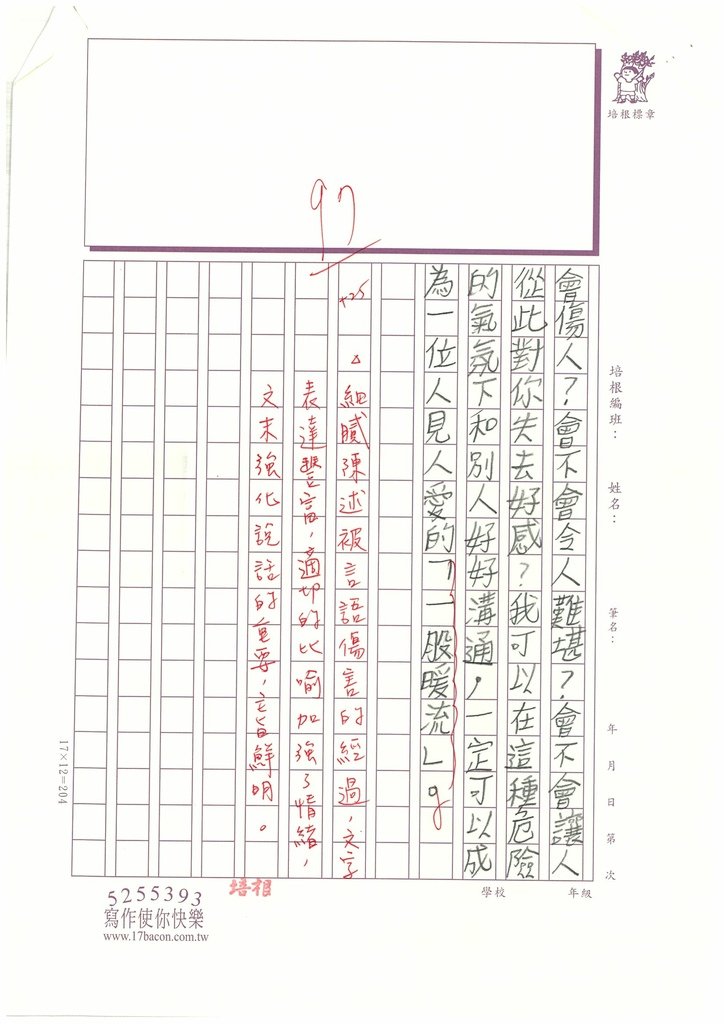 培根標章
培根編班：
姓名：
筆名：
年 月 日 第 次
學校
年級
97
+25
會傷人？會不會令人難堪？會不會讓人
從此對你失去好感？我可以在這種危險
的氣氛下和別人好好溝通，一定可以成
為一位人見人愛的「一股暖流」。
△細膩陳述被言語傷害的經過，文字
表達豐富，適切的比喻加強了情緒，
文末強化說話的重要，主旨鮮明。
17×12=204
培根
5255393
寫作使你快樂
www.17bacon.com.tw